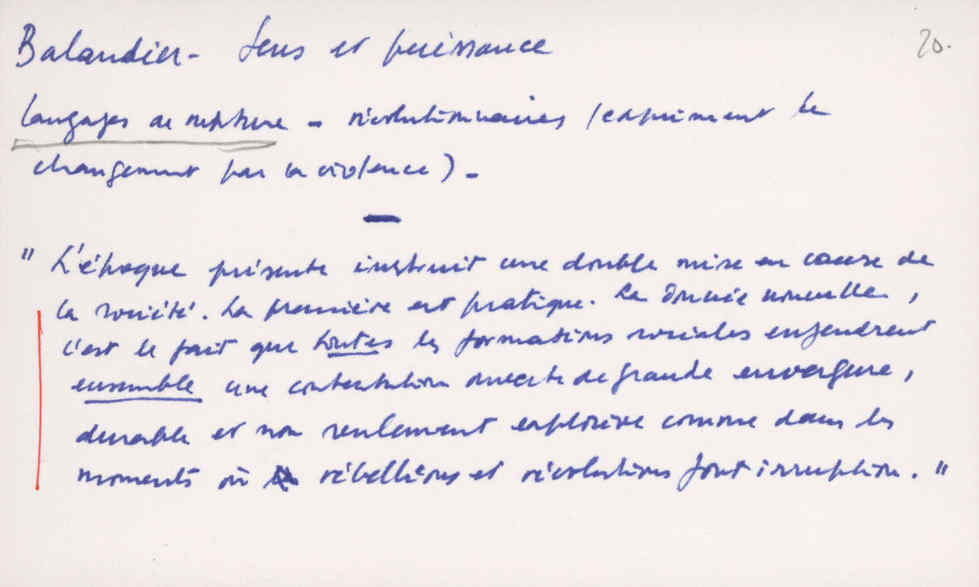 Balandier - Sens et puissance
20.
Langages de rupture - révolutionnaires (expriment le
changement par la violence) -
" L'époque présente instruit une double mise en cause de
la société. La première est pratique. La donnée nouvelle,
c'est le fait que toutes les formations sociales engendrent
ensemble une contestation ouverte de grande envergure,
durable et non seulement explosive comme dans les
moments où rébellions et révolutions font irruption. "